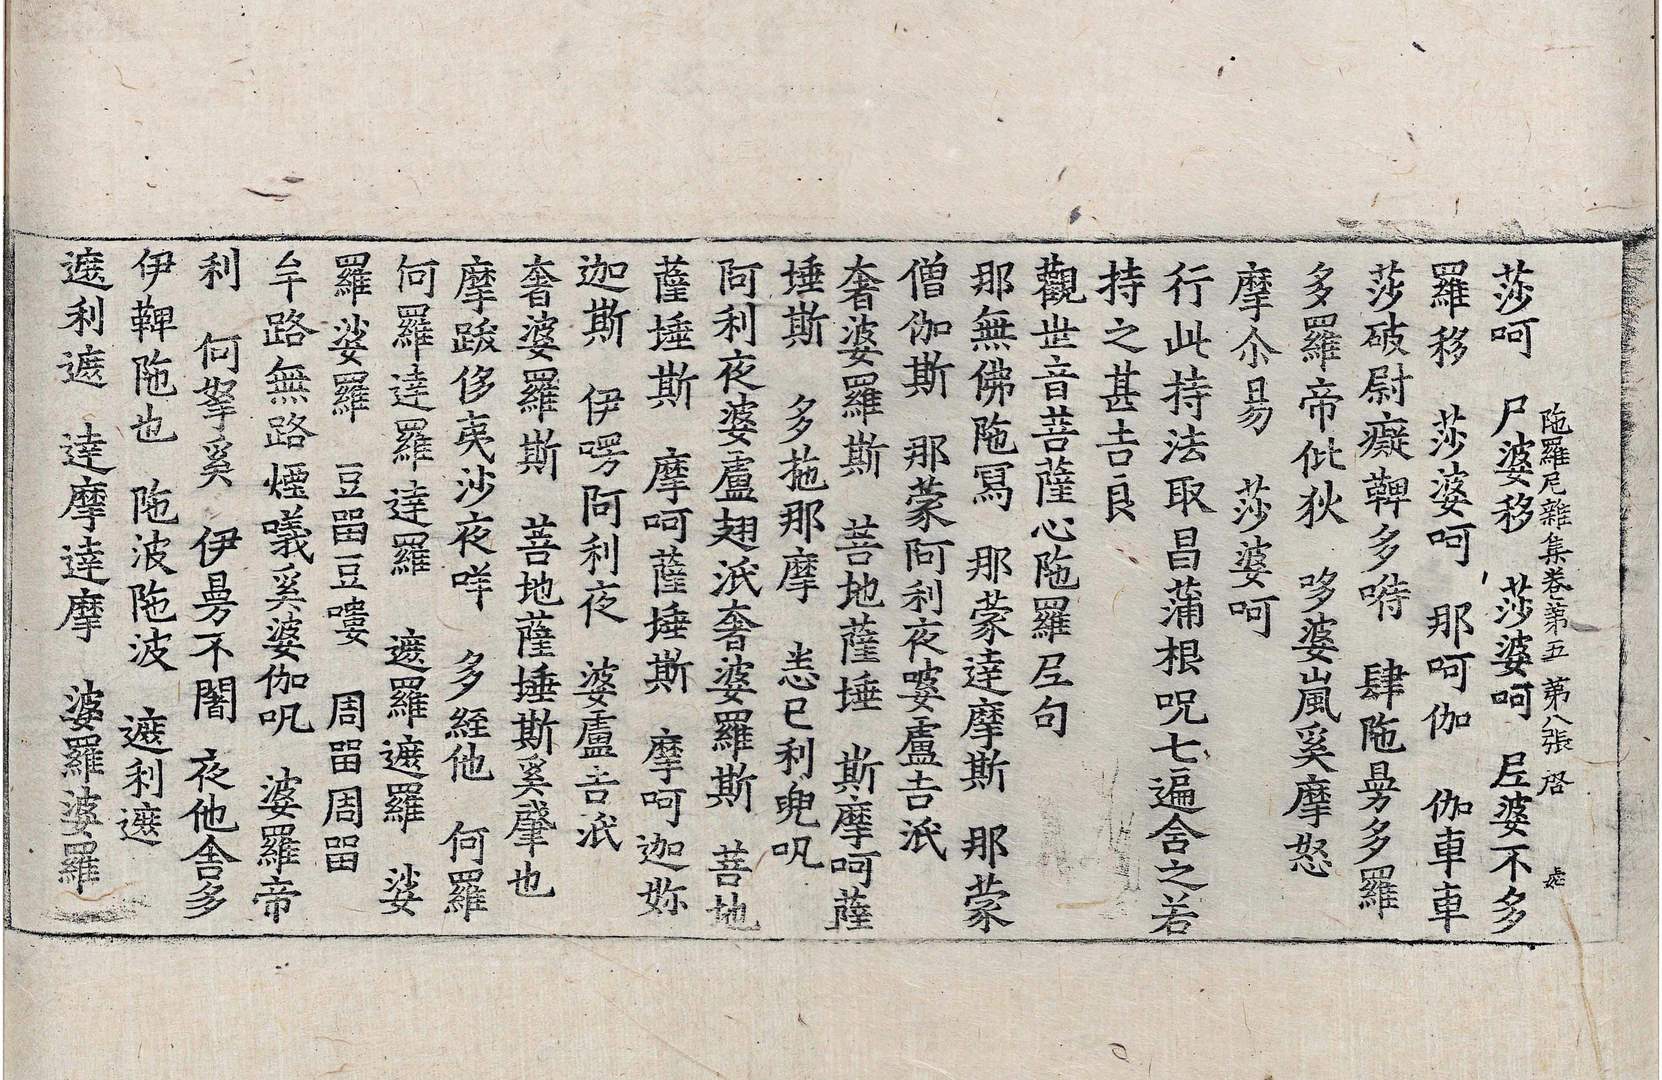 陁羅尼雜集卷第五 第八張 啓
莎呵 尸婆移 莎婆呵 㞐婆不多
羅移 莎婆呵 那呵伽 伽車車
莎破尉癡鞞多㗭 肆陁㬅多羅
多羅帝佌狄 哆婆嵐奚摩怒
摩尒昜 莎婆呵
行此持法取昌蒲根呪七遍含之若
持之甚吉良
觀世音菩薩心陁羅㞐句
那無佛陁寫 那蒙達摩斯 那蒙
僧伽斯 那蒙阿利夜婆盧吉泜
奢婆羅斯 菩地薩埵 斯摩呵薩
埵斯 多拖那摩 恙已利兜呪
阿利夜婆盧翅泜奢婆羅斯 菩地
薩埵斯 摩呵薩埵斯 摩呵迦妳
迦斯 伊㗁阿利夜 婆盧吉泜
奢婆羅斯 菩地薩埵斯奚肇也
摩跋侈夷沙夜咩 多経他 何羅
何羅達羅達羅 遮羅遮羅 娑
羅娑羅 豆畱豆嘍 周畱周畱
牟路無路煙㘈奚婆伽呪 婆羅帝
利 何拏奚 伊㬅不闍 夜他舎多
伊鞞陁也 陁波陁波 遮利遮
遮利遮 達摩達摩 婆羅婆羅